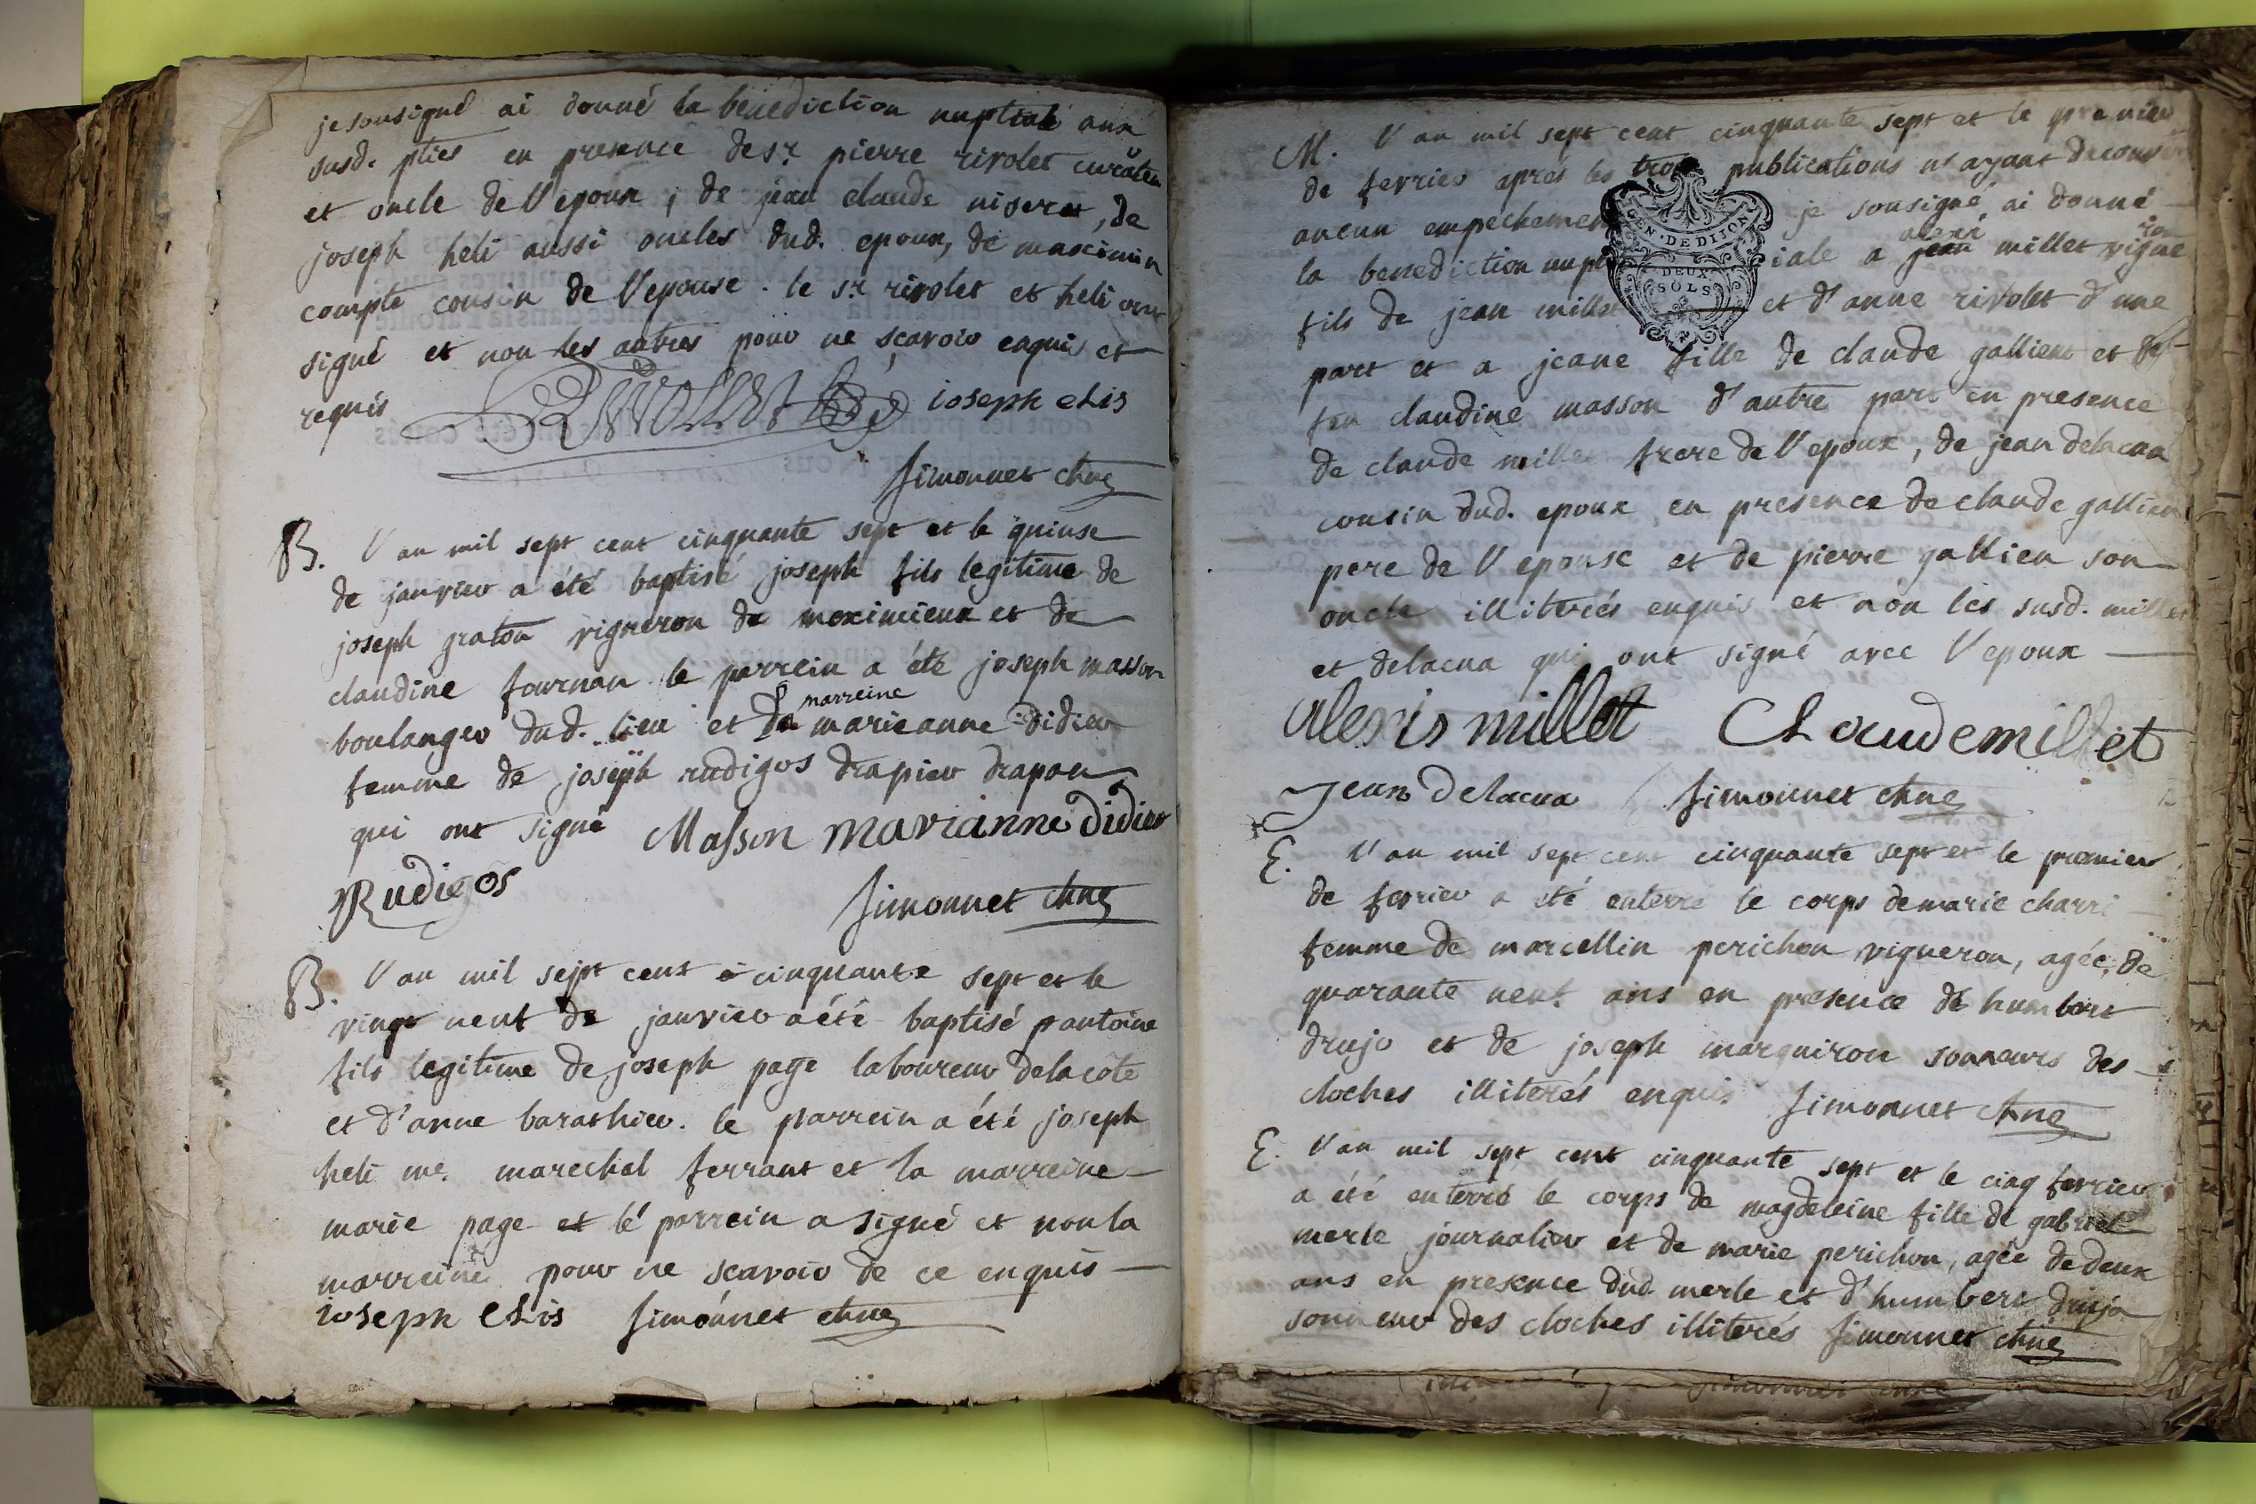 je sousigné ai donné la benediction nuptiale aux
susd. pties en presence de sr. pierre rivolet curateur
et oncle de l'epoux, de jean claude niseret, de
joseph heli aussi oncles dud. epoux, de maximin
compte cousin de l'epouse. le sr. rivolet et heli ont
signé et non les autres pour ne sçavoir enquis et
requis RIVOLLET ioseph eLis
simonnet chne
B. l'an mil sept cent cinquante sept et le quinse
de janvier a été baptisé joseph fils legitime de
joseph graton vigneron de meximieux et de
claudine fournan le parrein a été joseph masson
marreine
boulanger dud. lieu et la marie anne didier
femme de joseph rudigos drapier drapan
qui ont signé Masson marianne didier
Rudigos simonnet chne
B. l'an mil sept cent cinquante sept et le
vingt neuf de janvier a été baptisé antoine
fils legitime de joseph page laboureur de la cote
et d'anne barathier. le parrein a été joseph
heli me. marechal ferrant et la marreine
marie page et le parrein a signé et non la
marreine pour ne scavoir de ce enquis
ioseph eLis simonnet chne
M. l'an mil sept cent cinquante sept et le premier
de fevrier après les trois publications n'ayant decouvert
aucun empechement je sousigné ai donné
alexis ron
la benediction nuptiale a jean millet vigne
GEN. DE DIJON
DEUX
SOLS
fils de jean millet et d'anne rivolet d'une
part et a jeane fille de claude gallien et de
feu claudine masson d'autre part en presence
de claude millet frere de l'epoux, de jean delacua
cousin dud. epoux en presence de claude gallien
pere de l'epouse et de pierre gallien son
oncle illiterés enquis et non les susd. millet
et delacua qui ont signé avec l'epoux
alexis millet Claude millet
Jean Delacua simonnet chne
E. l'an mil sept cent cinquante sept et le premier
de fevrier a été enterré le corps de marie charri
femme de marcellin perichon vigneron, agée, de
quarante neuf ans en presence de humbert
drujo et de joseph marguiron sonneurs des
cloches illiterés enquis simonnet chne
E. l'an mil sept cent cinquante sept et le cinq fevrier
a été enterré le corps de magdeleine fille de gabriel
merle journalier et de marie perichon, agée de deux
ans en presence dud. merle et d'humbert drujo
sonneur des cloches illiterés simonnet chne